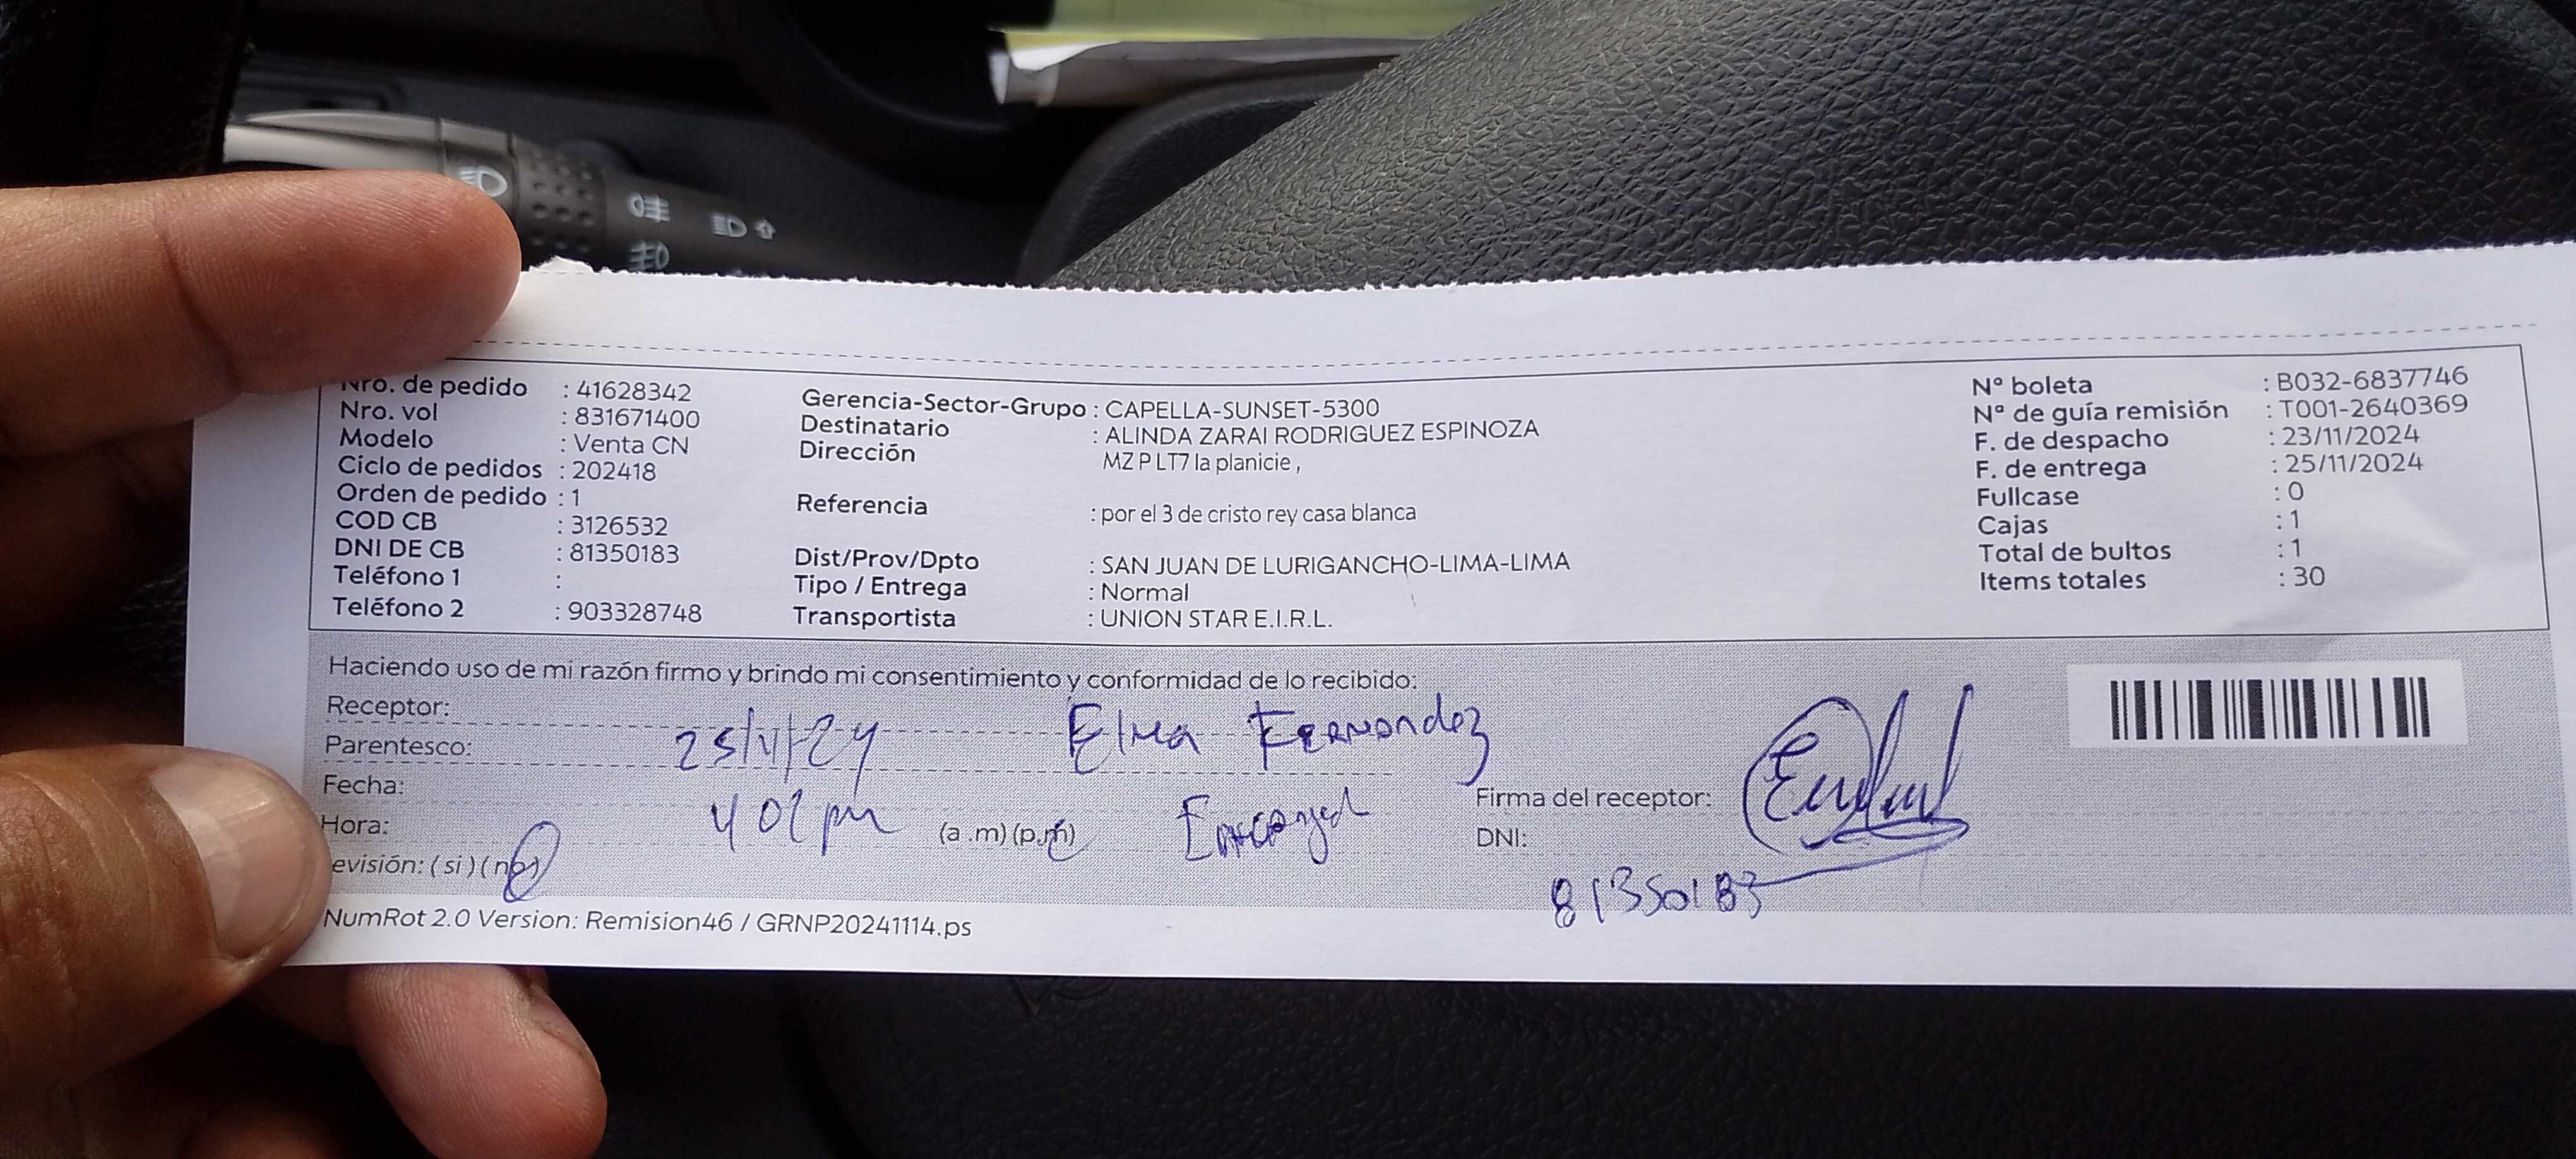 Nro. de pedido : 41628342
Nro. vol : 831671400
Modelo : Venta CN
Ciclo de pedidos : 202418
Orden de pedido : 1
COD CB : 3126532
DNI DE CB : 81350183
Teléfono 1 :
Teléfono 2 : 903328748
Gerencia-Sector-Grupo : CAPELLA-SUNSET-5300
Destinatario : ALINDA ZARAI RODRIGUEZ ESPINOZA
Dirección MZ P LT7 la planicie ,
Referencia : por el 3 de cristo rey casa blanca
Dist/Prov/Dpto : SAN JUAN DE LURIGANCHO-LIMA-LIMA
Tipo / Entrega : Normal
Transportista : UNION STAR E.I.R.L.
N° boleta : B032-6837746
N° de guía remisión : T001-2640369
F. de despacho : 23/11/2024
F. de entrega : 25/11/2024
Fullcase : 0
Cajas : 1
Total de bultos : 1
Items totales : 30
Haciendo uso de mi razón firmo y brindo mi consentimiento y conformidad de lo recibido:
Receptor:
Parentesco: 25/11/24 Elma Fernandez
Fecha:
Hora: 4 02 pm (a .m) (p.m)
evisión: ( si ) ( no )
Firma del receptor:
DNI:
81350183
NumRot 2.0 Version: Remision46 / GRNP20241114.ps